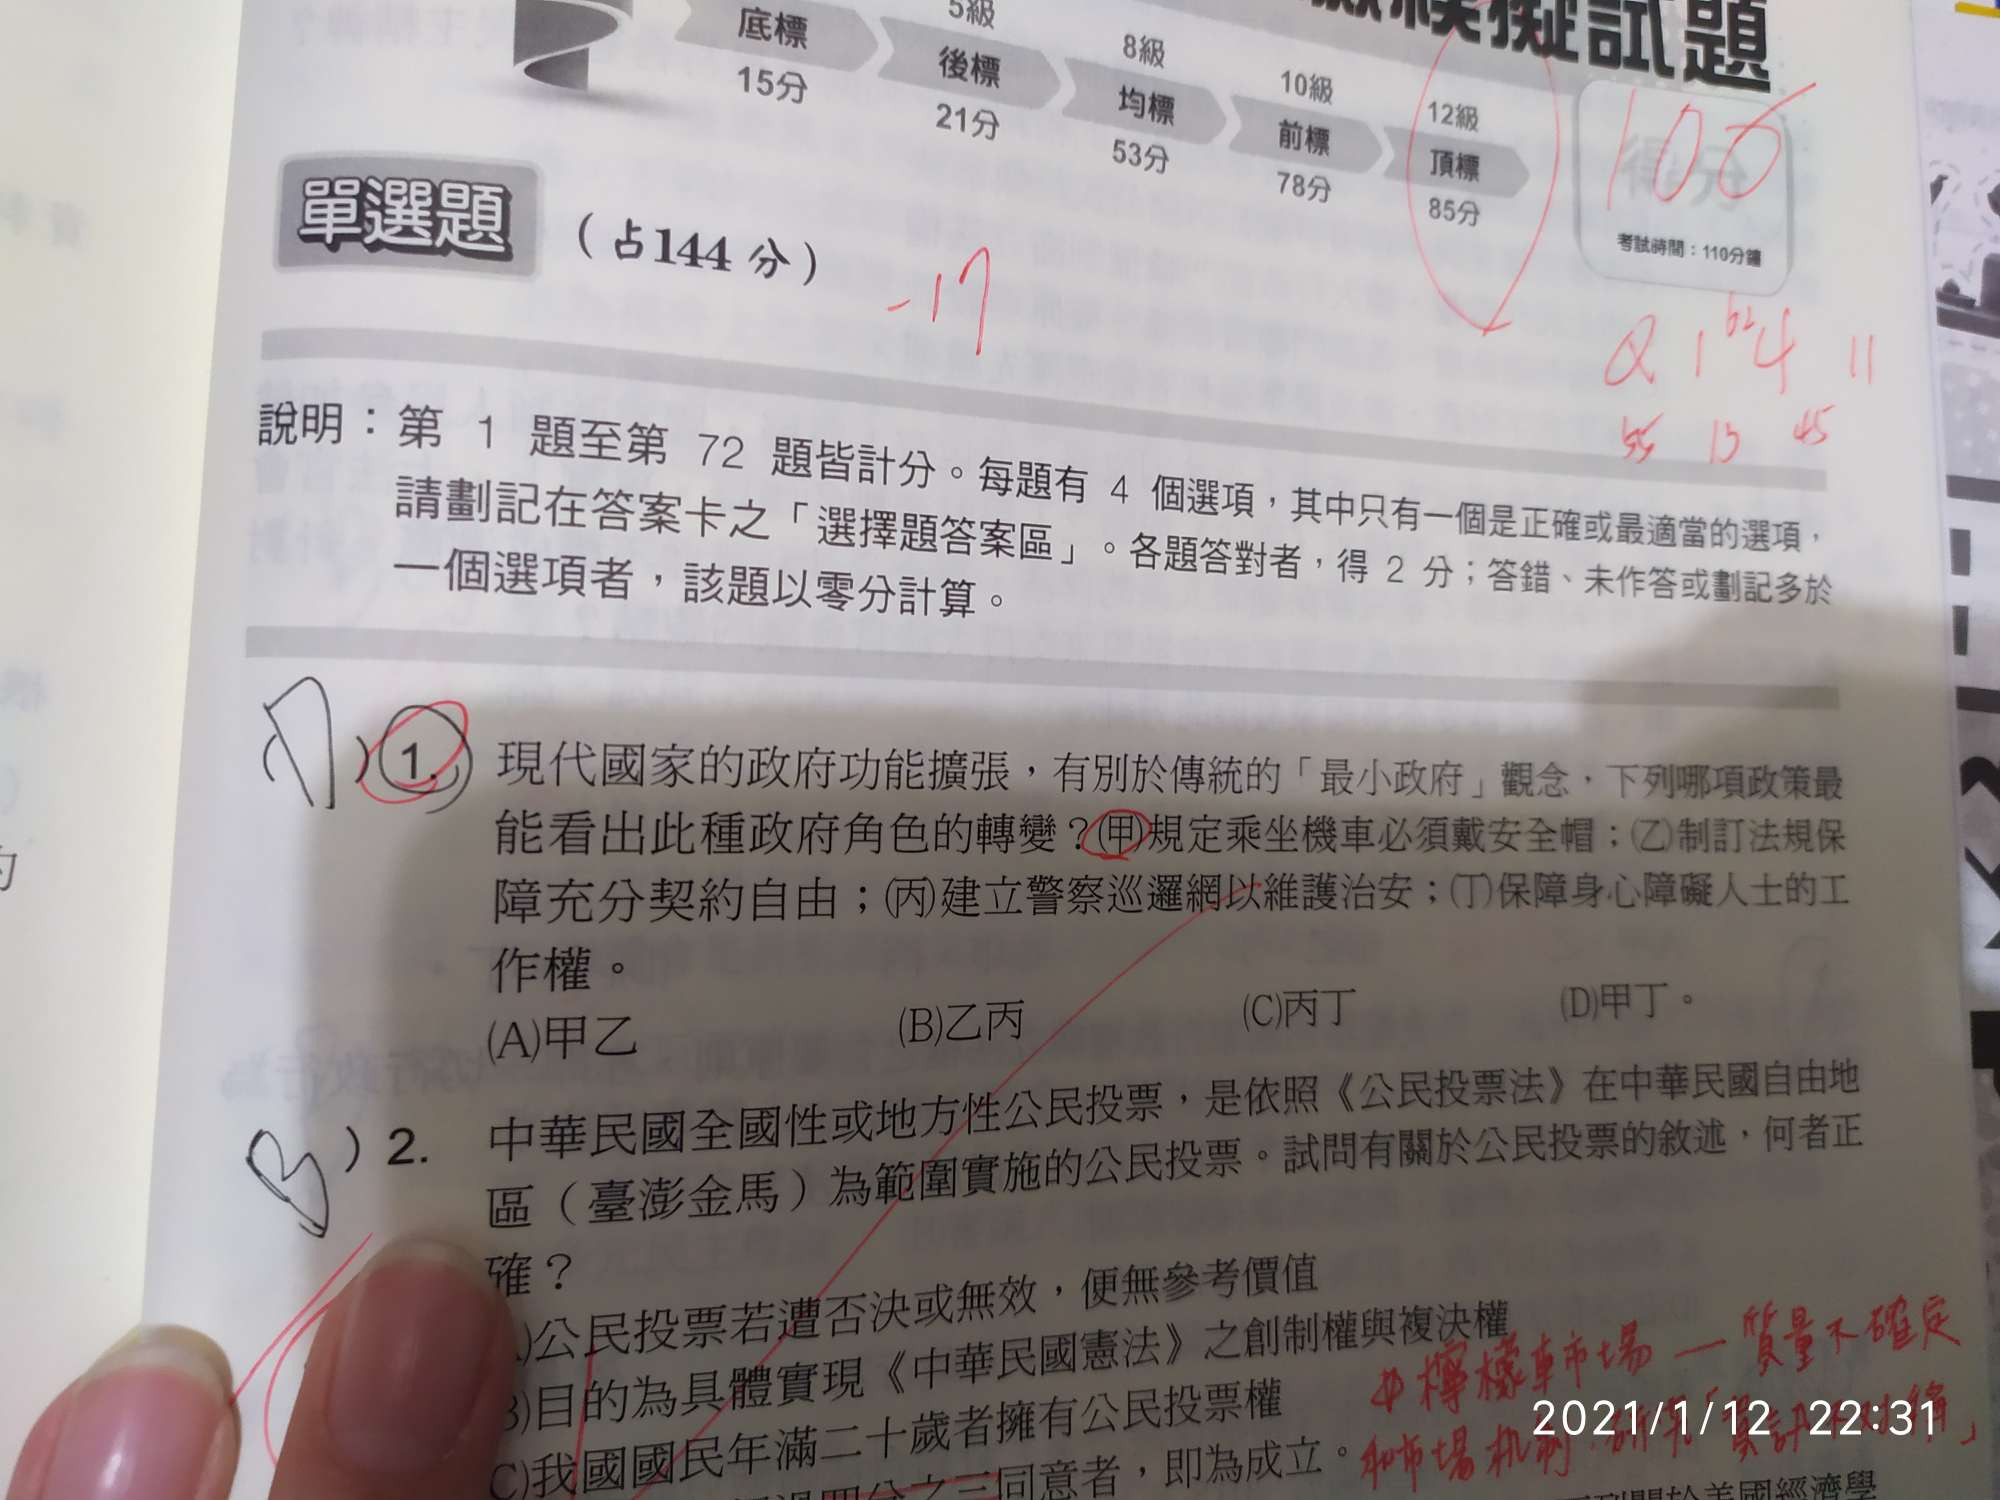 模擬試題
5級
8級
10級
12級
底標
後標
均標
前標
頂標
15分
21分
53分
78分
85分
得分
100
考試時間：110分鐘
單選題
（占144分）
-17
說明：第 1 題至第 72 題皆計分。每題有 4 個選項，其中只有一個是正確或最適當的選項，
請劃記在答案卡之「選擇題答案區」。各題答對者，得 2 分；答錯、未作答或劃記多於
一個選項者，該題以零分計算。
) 1. 現代國家的政府功能擴張，有別於傳統的「最小政府」觀念，下列哪項政策最
能看出此種政府角色的轉變？(甲)規定乘坐機車必須戴安全帽；(乙)制訂法規保
障充分契約自由；(丙)建立警察巡邏網以維護治安；(丁)保障身心障礙人士的工
作權。
(A)甲乙 (B)乙丙 (C)丙丁 (D)甲丁。
B ) 2. 中華民國全國性或地方性公民投票，是依照《公民投票法》在中華民國自由地
區（臺澎金馬）為範圍實施的公民投票。試問有關於公民投票的敘述，何者正
確？
)公民投票若遭否決或無效，便無參考價值
B)目的為具體實現《中華民國憲法》之創制權與複決權
C)我國國民年滿二十歲者擁有公民投票權
四分之三同意者，即為成立。
檸檬車市場 — 質量不確定
和市場机制
2021/1/12 22:31
列關於美國經濟學